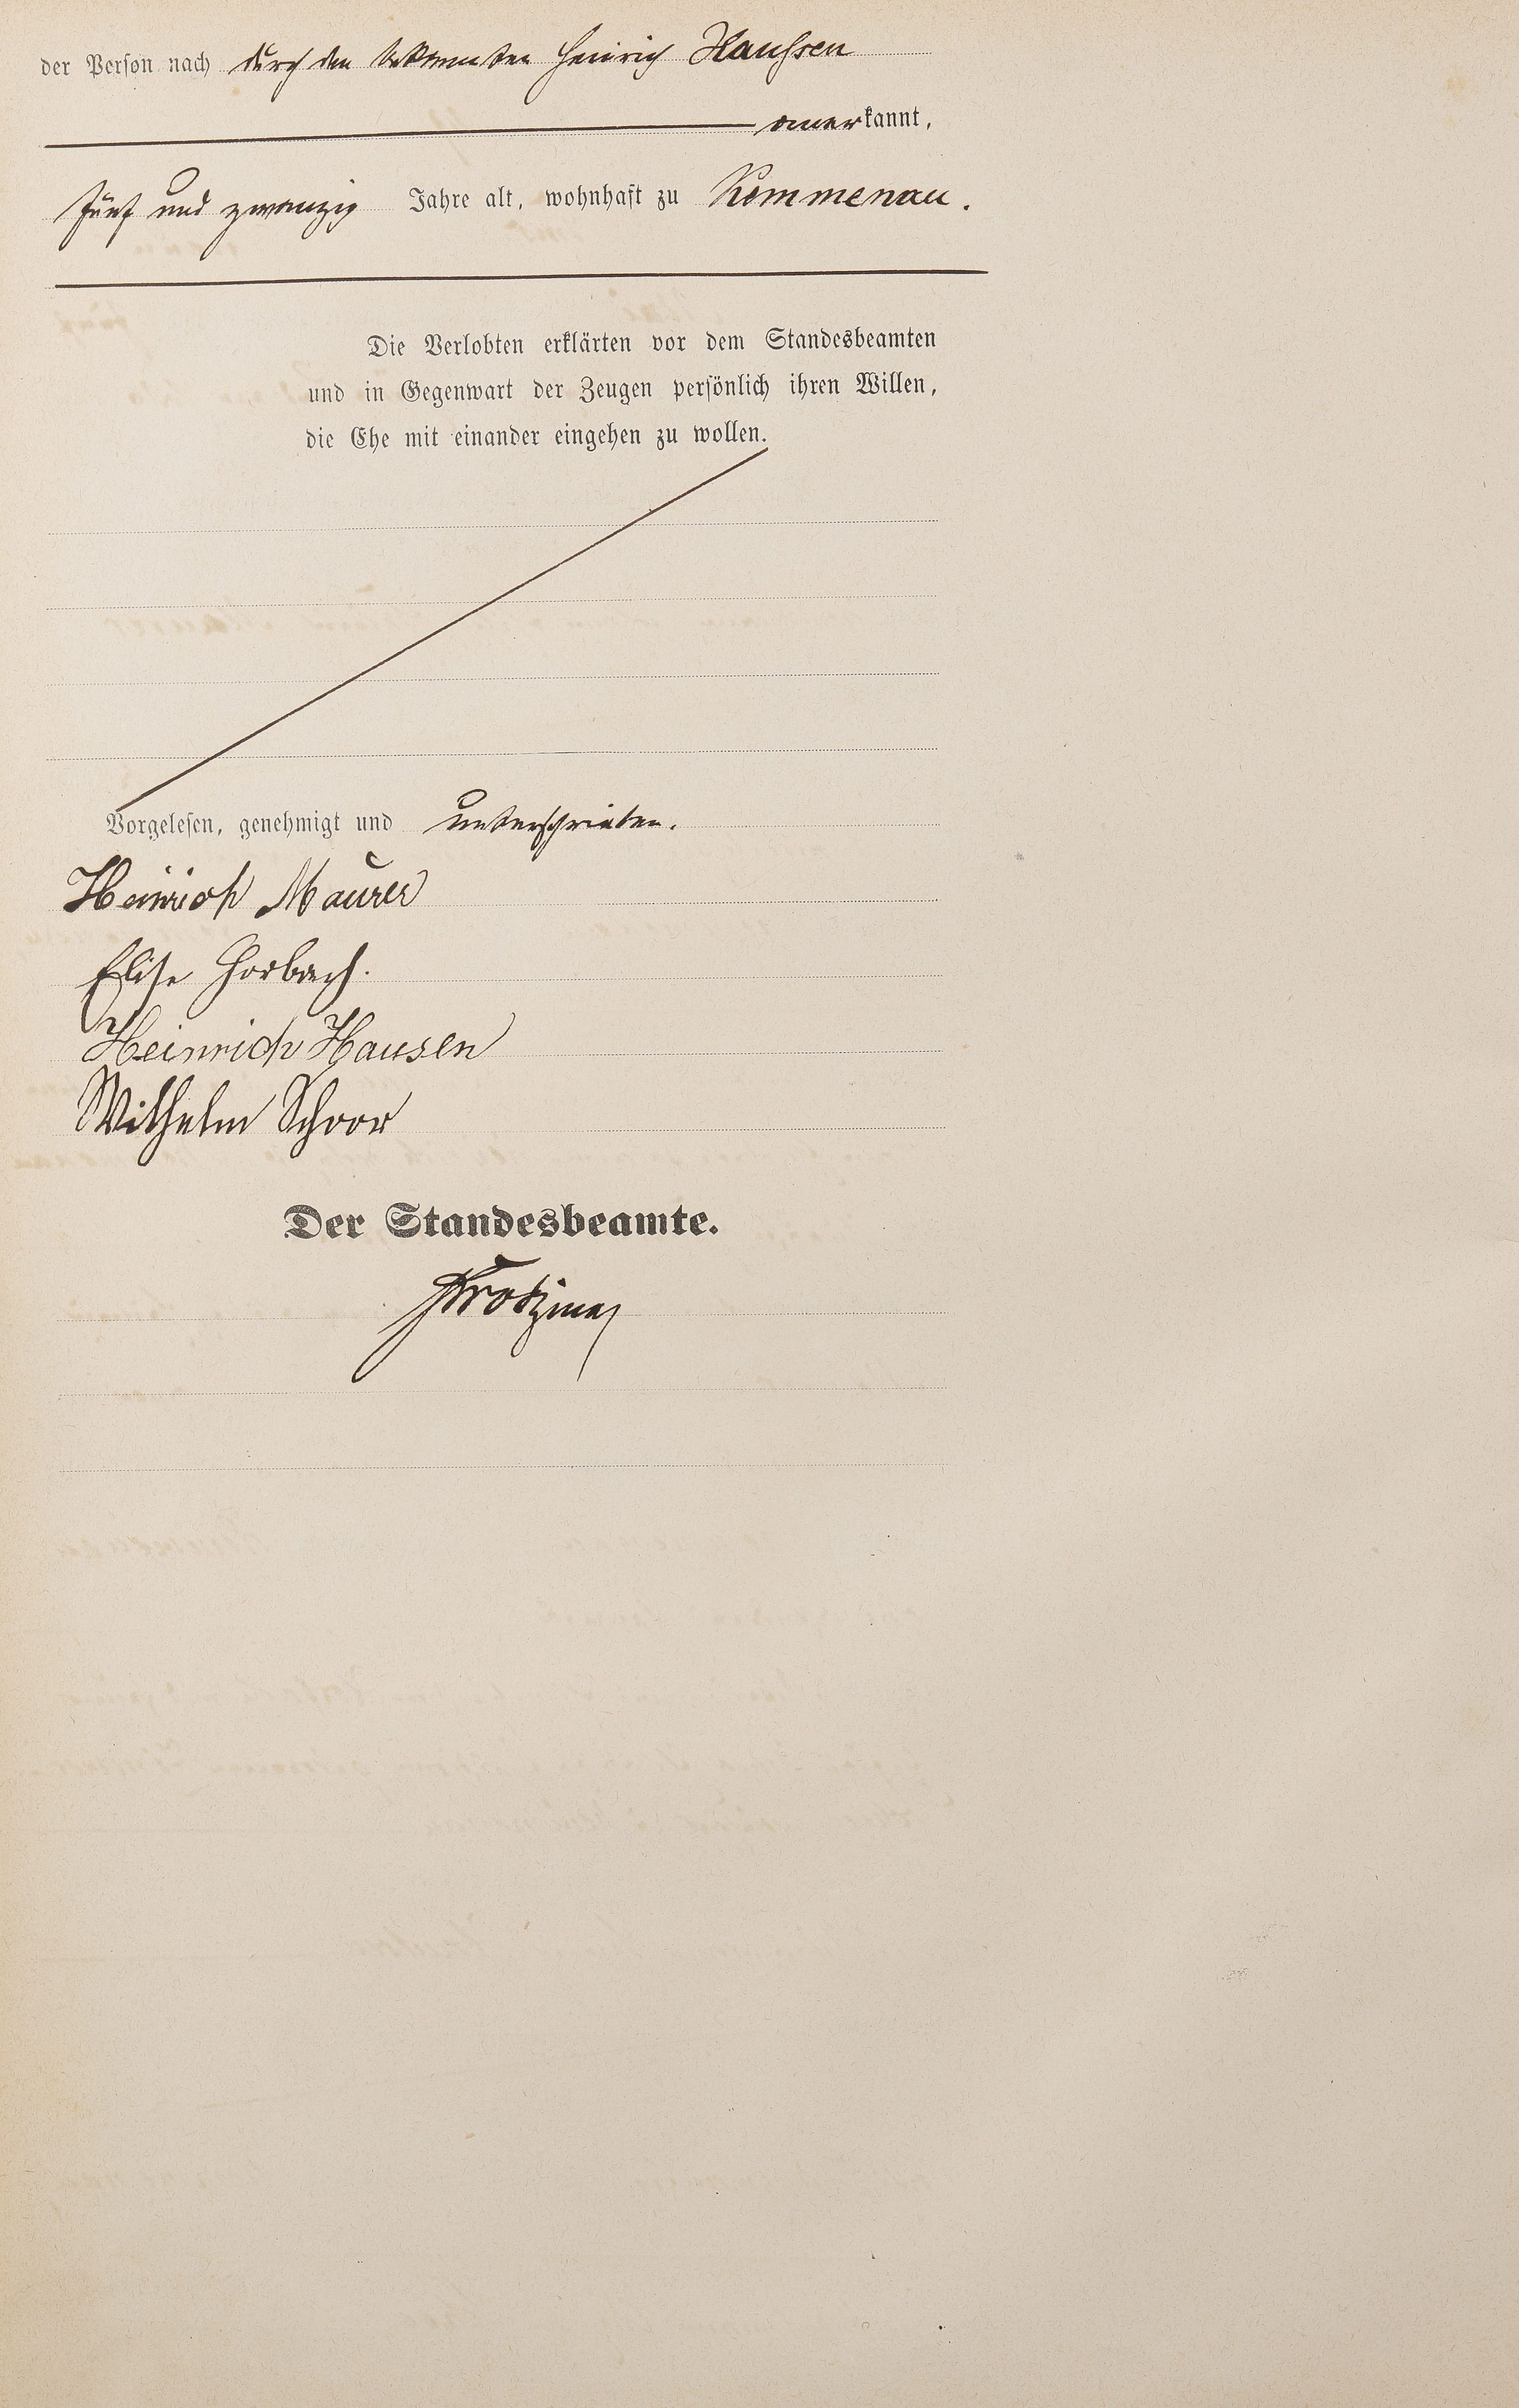 der Person nach durch den bekannten Heinrich Haussen
anerkannt,
fünf und zwanzig Jahre alt, wohnhaft zu Kemmenau.
Die Verlobten erklärten vor dem Standesbeamten
und in Gegenwart der Zeugen persönlich ihren Willen,
die Ehe mit einander eingehen zu wollen.
Vorgelesen, genehmigt und unterschrieben.
Heinrich Maurer
Elise Horbach.
Heinrich Hausen
Wilhelm Schoor
Der Standesbeamte.